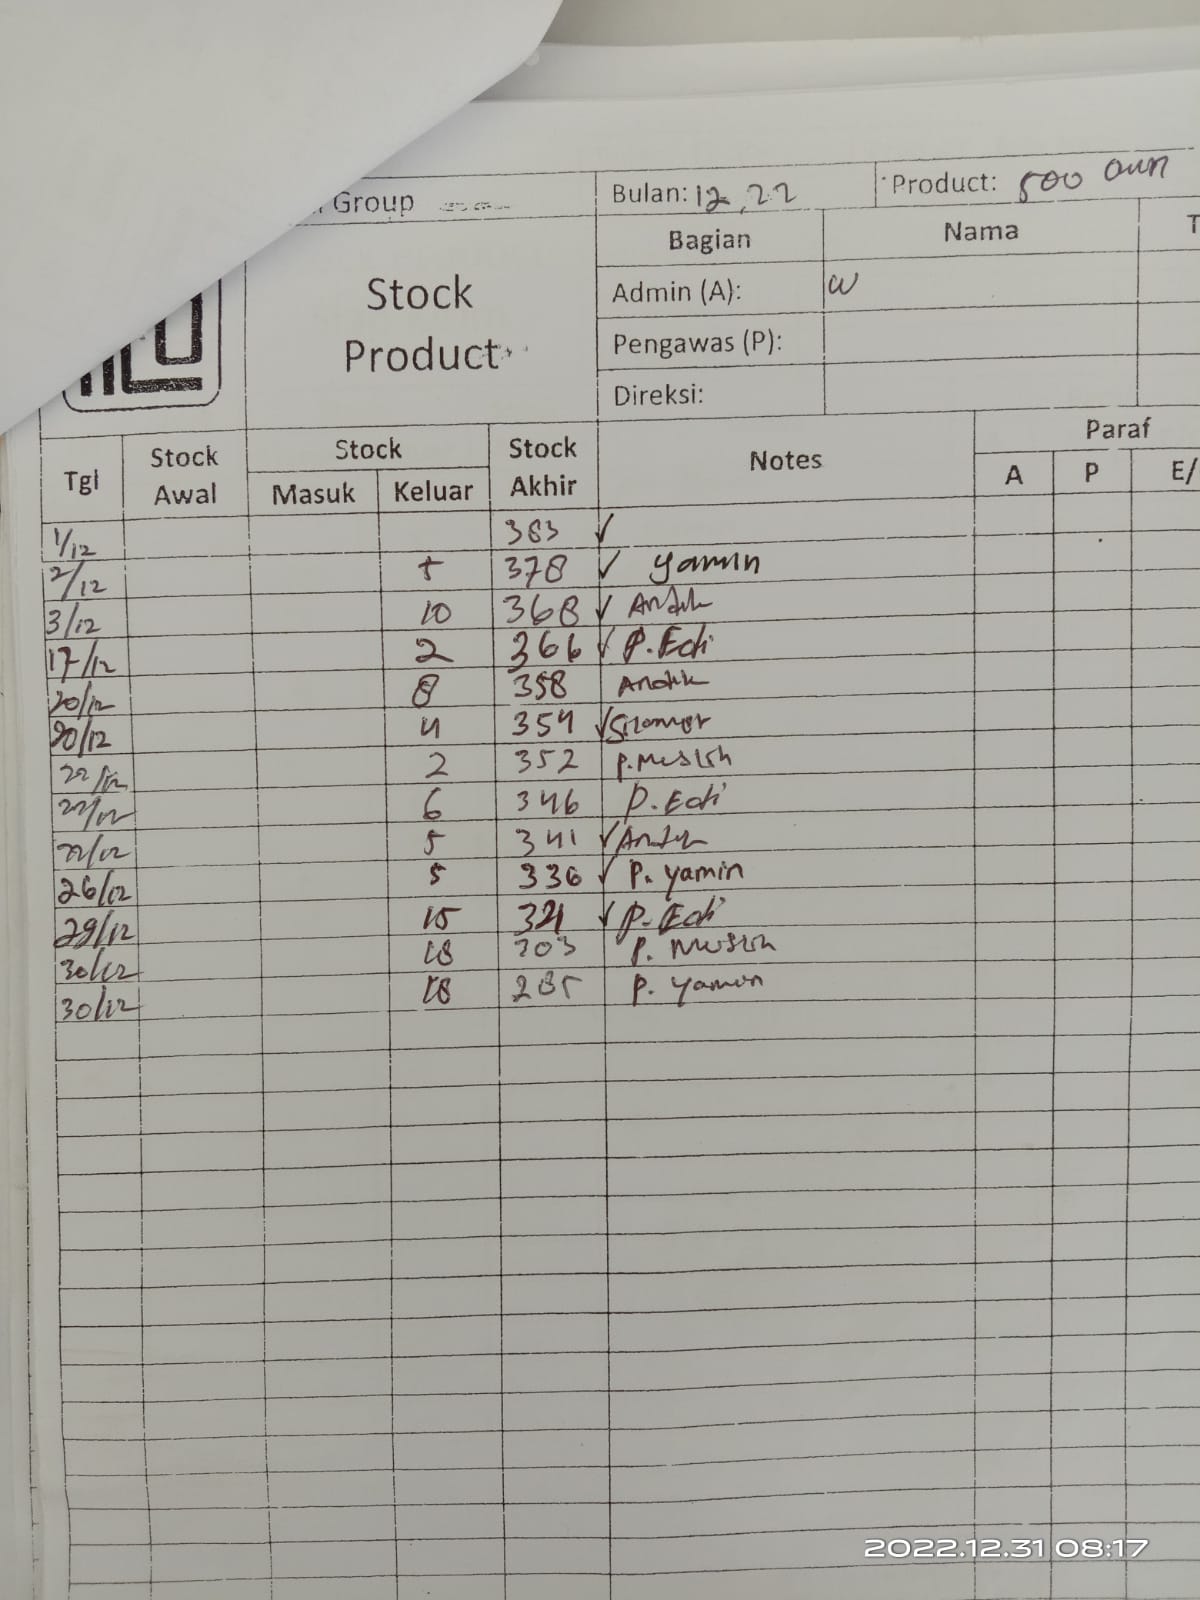 Group
Bulan: 12, 22
Product: 500 aun
Stock Product
Bagian Nama T
Admin (A): W
Pengawas (P):
Direksi:
Tgl Stock Awal Stock Masuk Keluar Stock Akhir Notes Paraf A P E/
1/12 383 ✓
2/12 5 378 ✓ yamin
3/12 10 368 ✓ Andik
17/12 2 366 ✓ P. Edi
20/12 8 358 Andik
20/12 4 354 ✓
22/12 2 352 P. Muslih
22/12 6 346 P. Edi
22/12 5 341 ✓ Andik
26/12 5 336 ✓ P. yamin
29/12 15 321 ✓ P. Edi
30/12 18 303 P. Muslih
30/12 18 285 P. yamin
2022.12.31 08:17